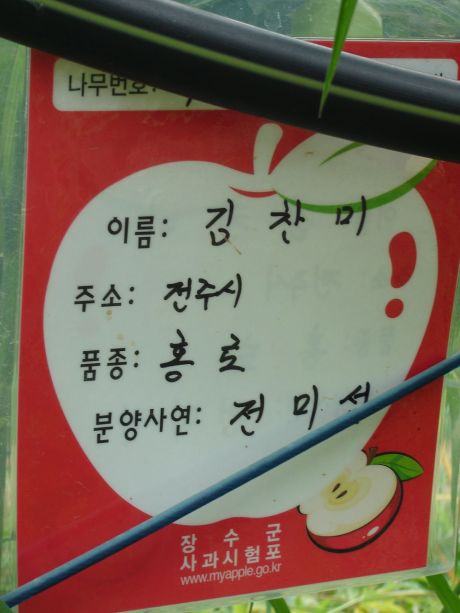 나무번호:
이름: 김찬미
주소: 전주시
품종: 홍로
분양사연: 전미선
장수군
사과시험포
www.myapple.go.kr